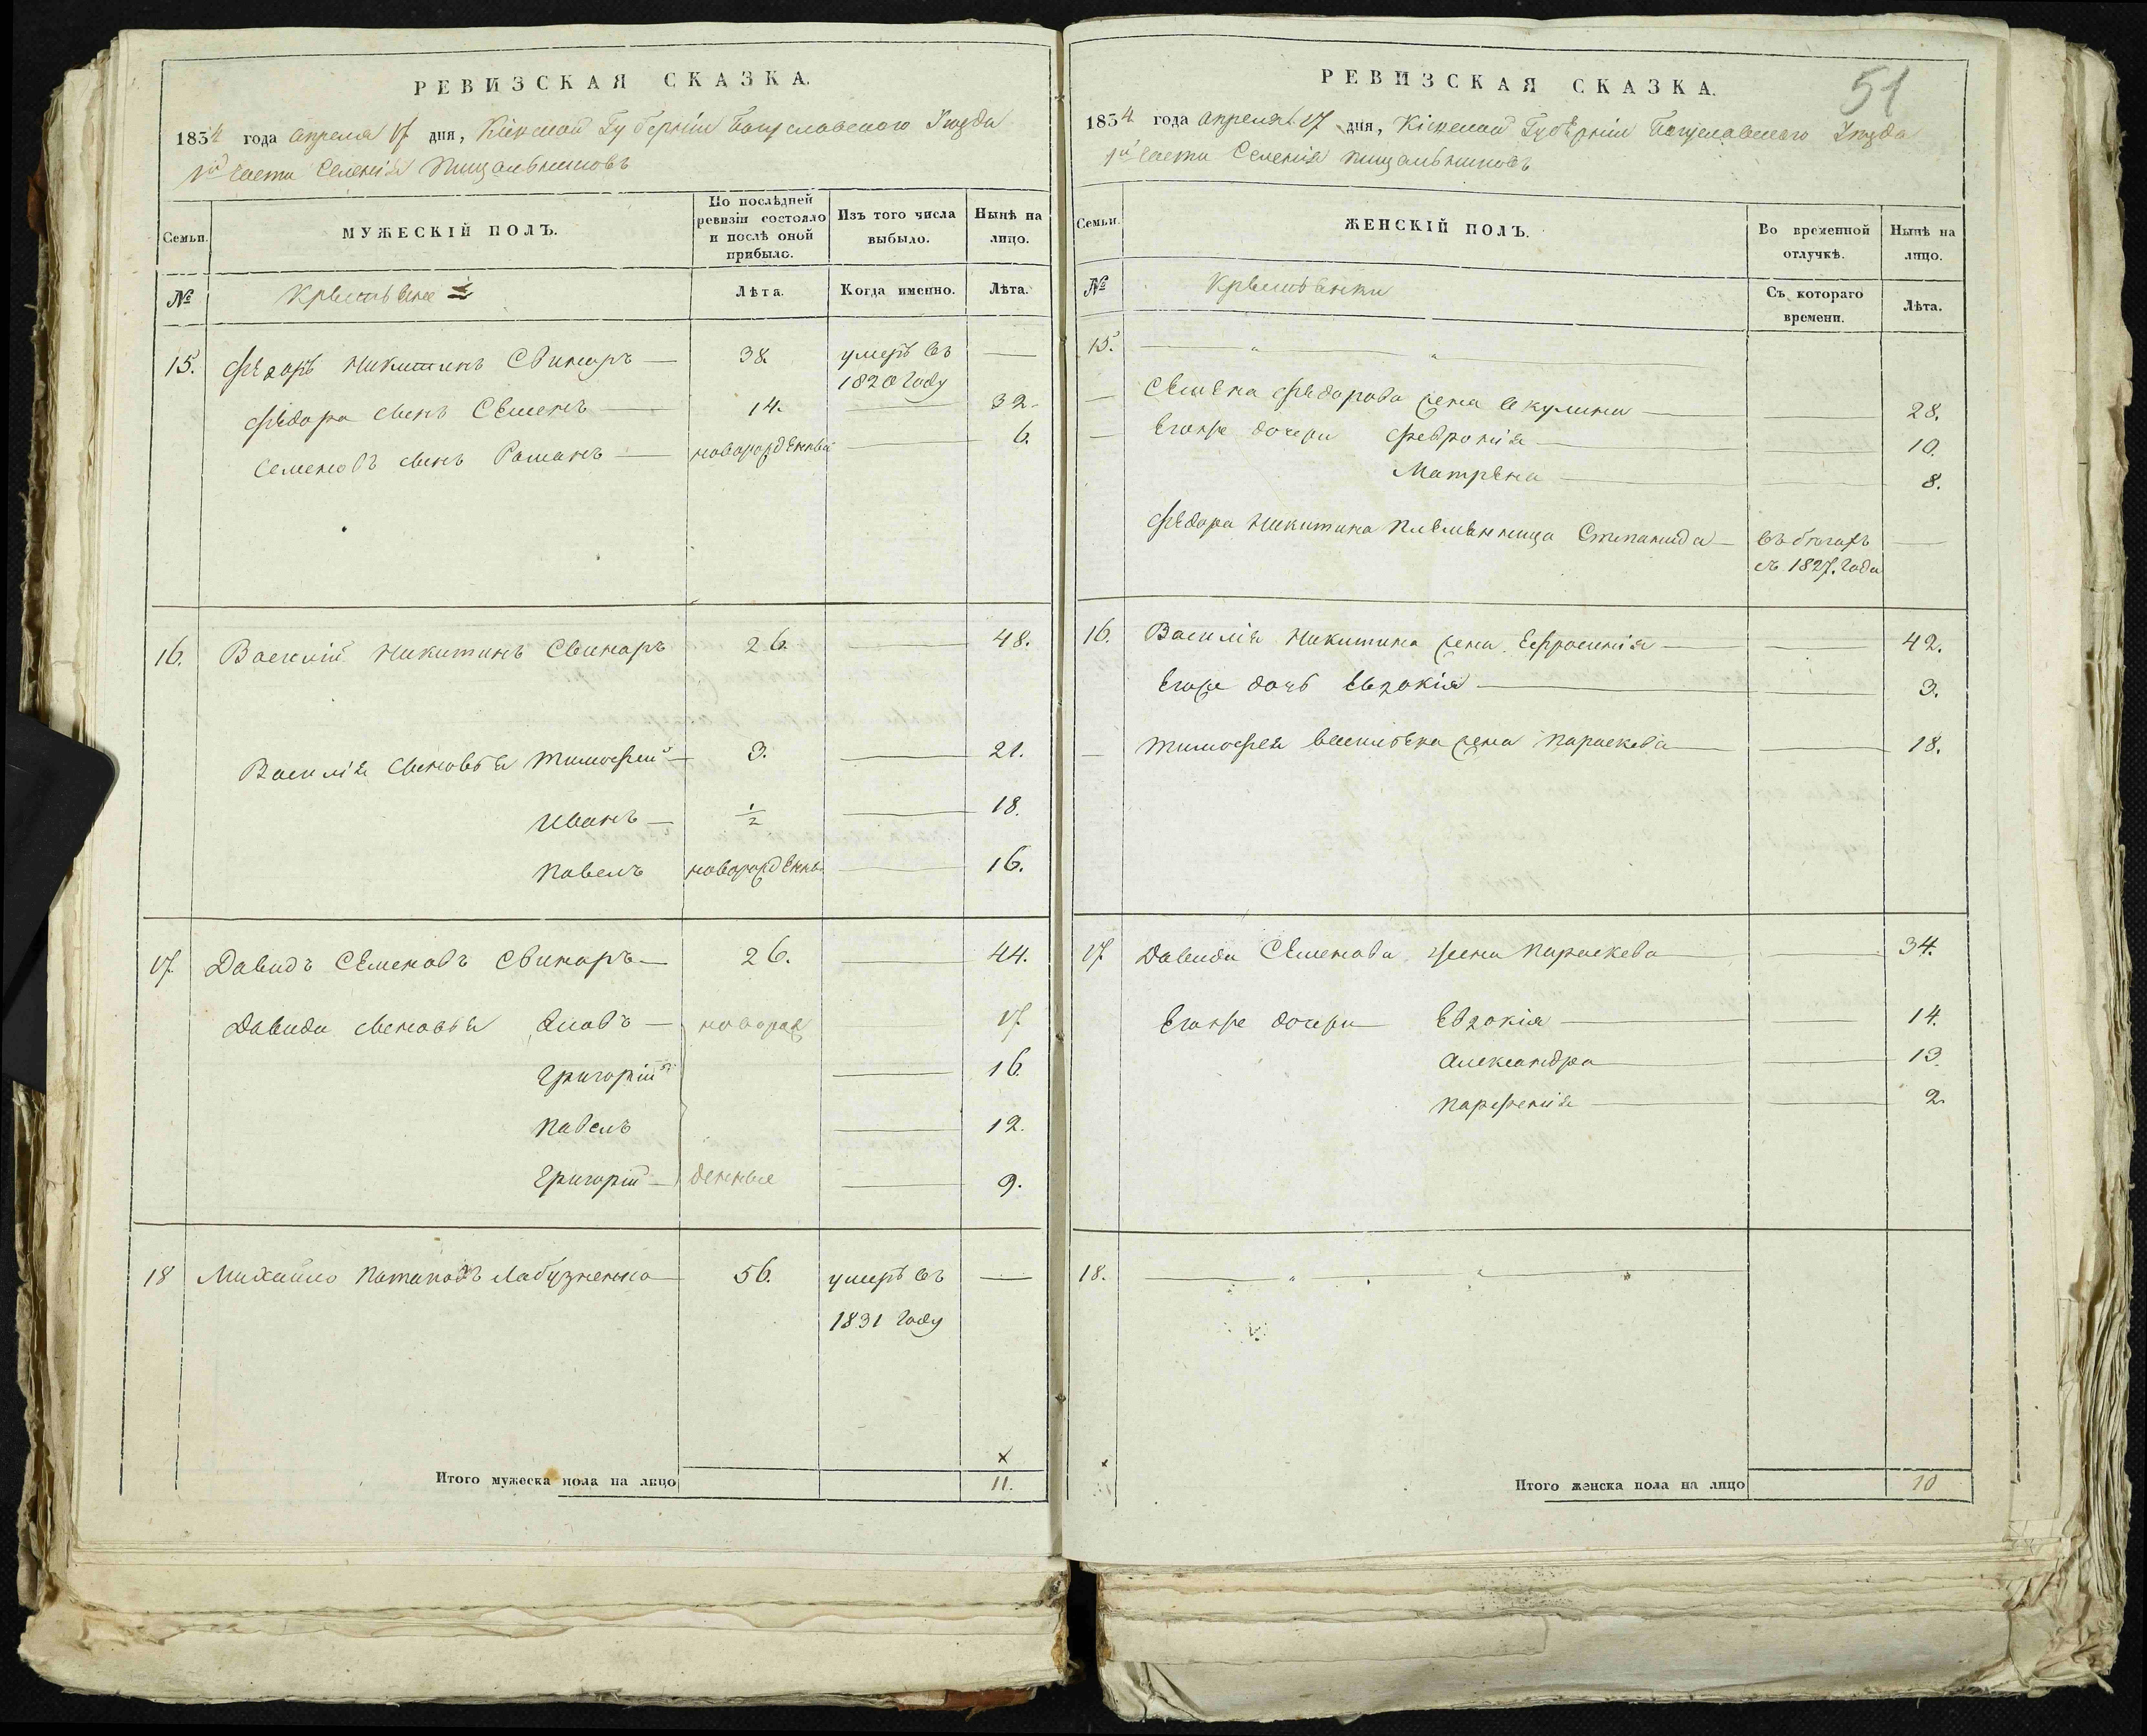 РЕВИЗСКАЯ СКАЗКА.
1834 года апреля 17 дня, Кіевской Губерніи Богуславского Уезда
1й части Селенія Пищальниковъ
Семьи.
МУЖЕСКІЙ ПОЛЪ.
По послѣдней ревизіи состояло и послѣ оной прибыло.
Изъ того числа выбыло.
Нынѣ на лицо.
№
Крестьяне
Лѣта.
Когда именно.
Лѣта.
15. Федоръ Никитинъ Свинаръ — 38. умеръ въ —
1820 году
Федора сынъ Семенъ — 14. — 32.
Семеновъ сынъ Романъ — новорожденный — 6.
16. Василій Никитинъ Свинаръ 26. — 48.
Василія сыновья Тимофей — 3. — 21.
Иванъ — ½ — 18.
Павелъ новорожденны — 16.
17. Давидъ Семеновъ Свинаръ — 26. — 44.
Давида сыновья Яковъ — новорож 17
Григорій 1й — 16.
Павелъ — 12.
Григорій — денные — 9.
18 Михайло Потаповъ Лабузненко — 56. умеръ въ —
1831 году
х
Итого мужеска пола на лицо 11.
51
РЕВИЗСКАЯ СКАЗКА.
1834 года апреля 17 дня, Кіевской Губерніи Богуславского Уезда
1й части Селенія Пищальниковъ
Семьи.
ЖЕНСКІЙ ПОЛЪ.
Во временной отлучкѣ.
Нынѣ на лицо.
№
Крестьянки
Съ котораго времени.
Лѣта.
15. — „ — „
— Семена Федорова жена Акулина — — 28.
— Егожъ дочери Феврония — — 10.
Матрена — — 8.
Федора Никитина племянница Степанида — въ бегахъ —
съ 1827. года
16. Василія Никитина жена Ефросинія — — 42.
Егоже дочь Евдокія — — 3.
— Тимофея Васильева жена Параскева — — 18.
17 Давида Семенова жена Параскева — — 34.
Егожъ дочери Евдокія — — 14.
Александра — — 13.
Парфенія — — 2.
18. — „ — „ — „ —
Итого женска пола на лицо 10